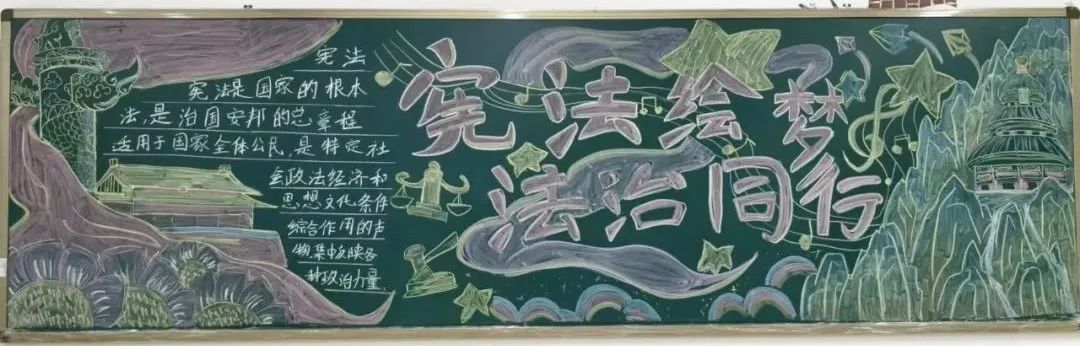 宪法
宪法是国家的根本
法,是治国安邦的总章程
适用于国家全体公民,是特定社
会政法经济和
思想文化条件
综合作用的声
物,集中反映各
种政治力量
宪法绘梦
法治同行